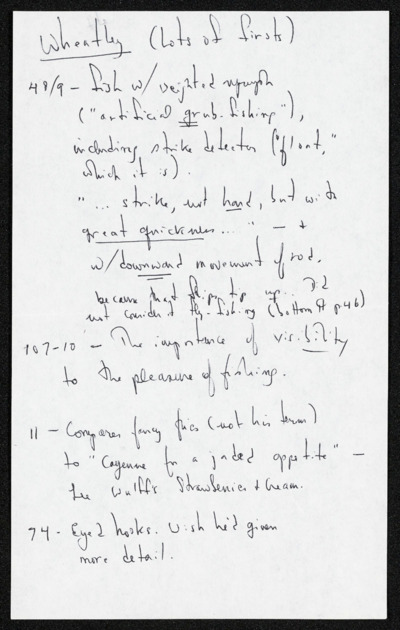 Wheatley (Lots of firsts)
48/9 - Fish w/ weighted nymph
("artificial grub-fishing"),
including strike detector ("float,"
which it is).
"... strike, not hard, but with
great quickness ..." - +
w/ downward movement of rod,
because that flips tip up. Did
not consider it fly-fishing (bottom of p 46)
107-10 - The importance of visibility
to the pleasure of fishing.
11 - Compares fancy flies (not his term)
to "Cayenne for a jaded appetite" -
Lee Wulff's Strawberries & Cream.
74 - Eyed hooks. Wish he'd given
more detail.